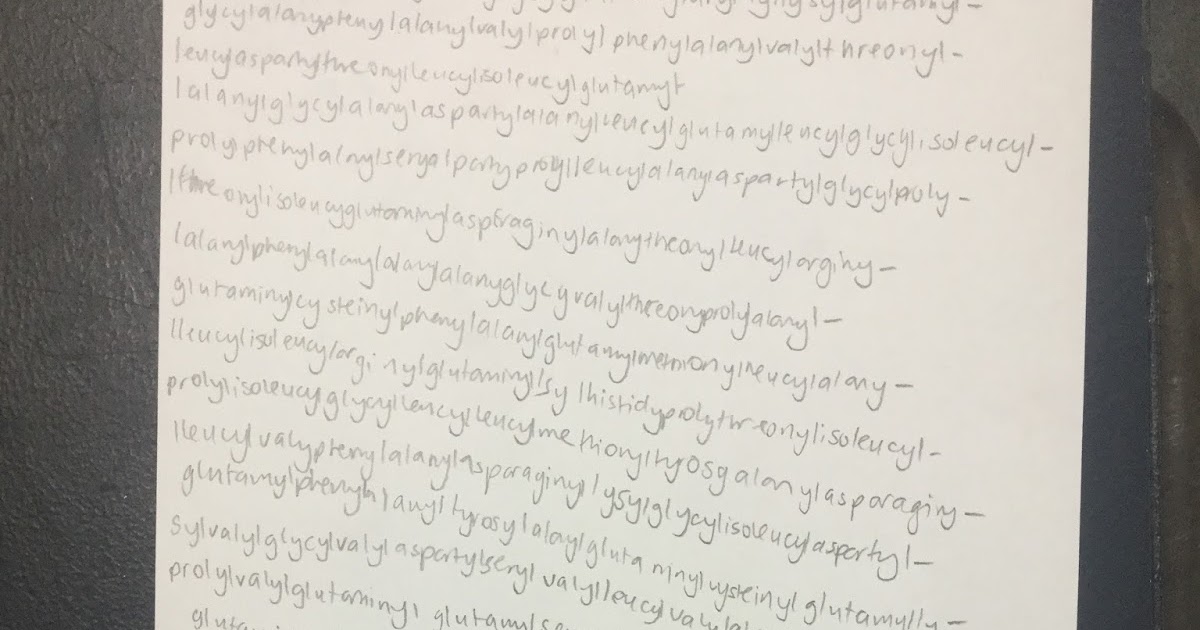 glycylalanyptenylalanylvalylprolylphenylalanylvalylthreonyl-
leucyaspartylthreonylleucylisoleucylglutamyt
lalanylglycylalanylaspartylalanylleucylglutamylleucylglycylisoleucyl-
prolyiptenylalnylseryalpartyprolylleucylalanylaspartylglycylproly-
lthreonylisoleucyglutaminylaspfraginylalanytheonylleucylarginy-
lalanylphenylalanylalanylalanyglycyvalylthreonyprolyalanyl-
glutaminycysteinylphenylalanylglutamylmethionylleucylalany-
lleucylisoleucylarginylglutaminyllsylhistidyprolythreonylisoleucyl-
prolylisoleucyglycylleucylleucylmethionyltyrosgalanylasparaginy-
lleucylvalyptenylalanylasparaginyllysylglycylisoleucyaspartyl-
glutamylphenylalanyltyrosylalaylglutaminylcysteinylglutamylly-
sylvalylglycylvalylaspartylserylvalylleucylvalylal
prolylvalylglutaminyl glutamylse